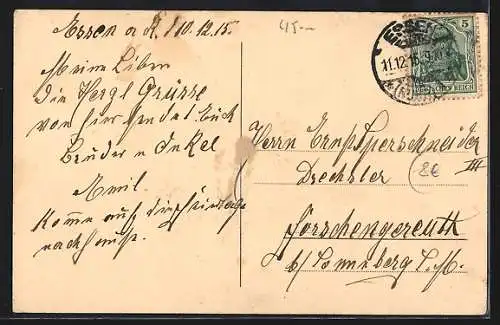 Essen a. R. 10.12.15.
Meine Lieben
Die Herzl Grüsse
von hier sendet Euch
Bruder u Onkel
Emil.
Komme auf die Feiertage
nach Hause.
45.-
ESSEN
11.12.15. 9-10
5
DEUTSCHES REICH
Herrn Ernst Sperschneider
Drechsler
III
8€
Forschengereuth
b/ Sonneberg S. M.